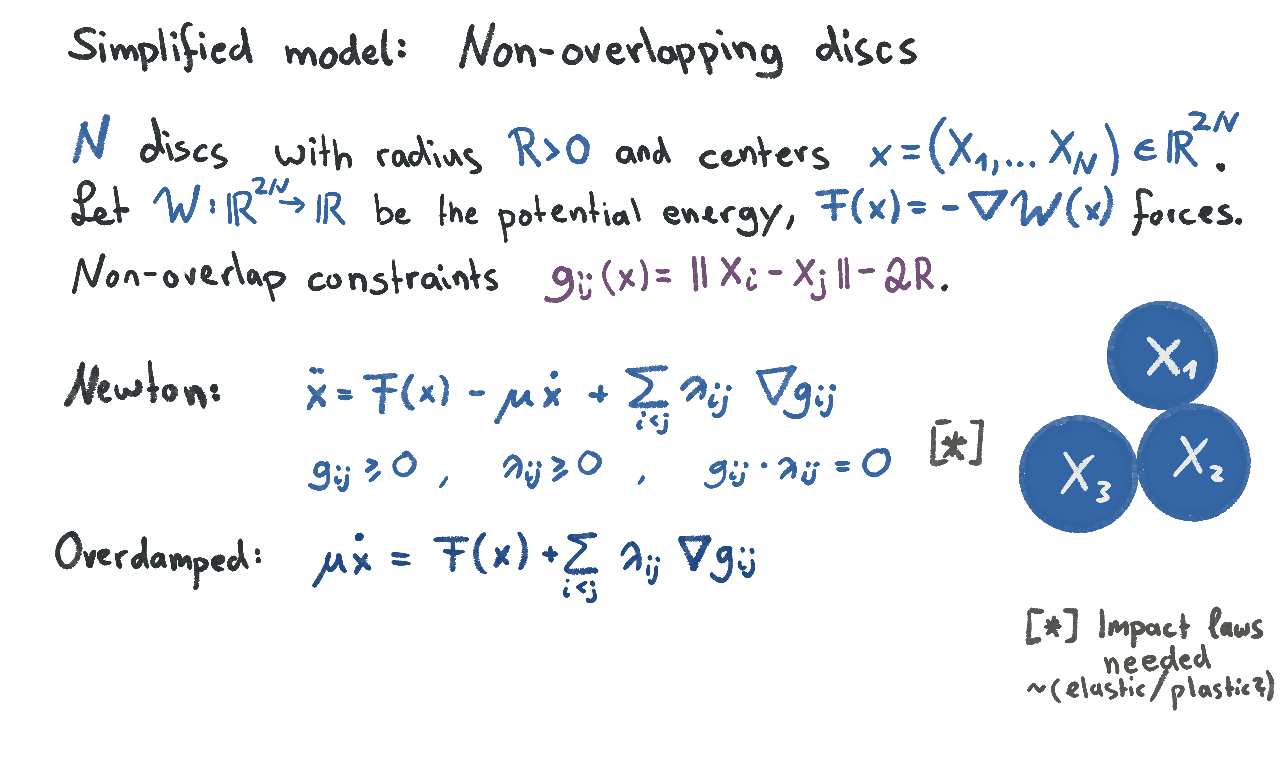 Simplified model: Non-overlapping discs
N discs with radius R>0 and centers x = (X₁,... X_N) ∈ ℝ²ᴺ.
Let W : ℝ²ᴺ → ℝ be the potential energy, F(x) = - ∇W(x) forces.
Non-overlap constraints g_ij(x) = ‖X_i - X_j‖ - 2R.
X₁
Newton: ẍ = F(x) - μẋ + ∑_{i<j} λ_ij ∇g_ij
g_ij ≥ 0 , λ_ij ≥ 0 , g_ij · λ_ij = 0 [*]
X₃ X₂
Overdamped: μẋ = F(x) + ∑_{i<j} λ_ij ∇g_ij
[*] Impact laws
needed
~(elastic/plastic?)